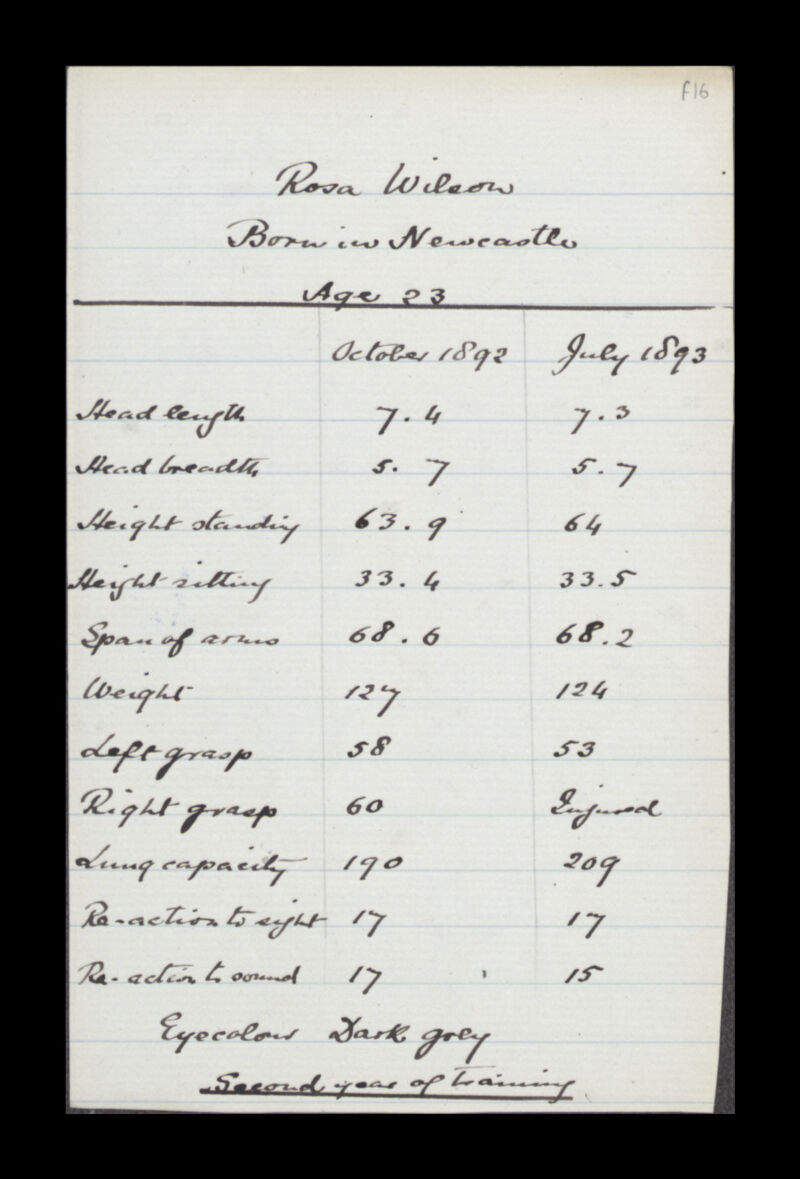 F16
Rosa Wilson
Born in Newcastle
Age 23
October 1892 July 1893
Head length 7.4 7.3
Head breadth 5.7 5.7
Height standing 63.9 64
Height sitting 33.4 33.5
Span of arms 68.6 68.2
Weight 127 124
Left grasp 58 53
Right grasp 60 Injured
Lung capacity 190 209
Re-action to sight 17 17
Re-action to sound 17 15
Eyecolour Dark grey
Second year of training